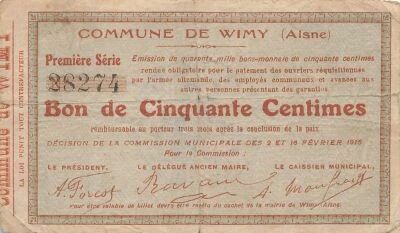 COMMUNE DE WIMY (Aisne)
Première Série
38274
Emission de quarante mille bons-monnaie de cinquante centimes
rendue obligatoire pour le paiement des ouvriers réquisitionnés
par l'armée allemande, des employés communaux et avances aux
autres personnes présentant des garanties
Bon de Cinquante Centimes
remboursable au porteur trois mois après la conclusion de la paix
DÉCISION DE LA COMMISSION MUNICIPALE DES 2 ET 16 FÉVRIER 1915
Pour la Commission :
LE PRÉSIDENT. LE DÉLÉGUÉ ANCIEN MAIRE, LE CAISSIER MUNICIPAL,
Pour être valable ce billet devra être revêtu du cachet de la mairie de Wimy (Aisne)
Commune de WIMY
LA LOI PUNIT TOUT CONTREFACTEUR